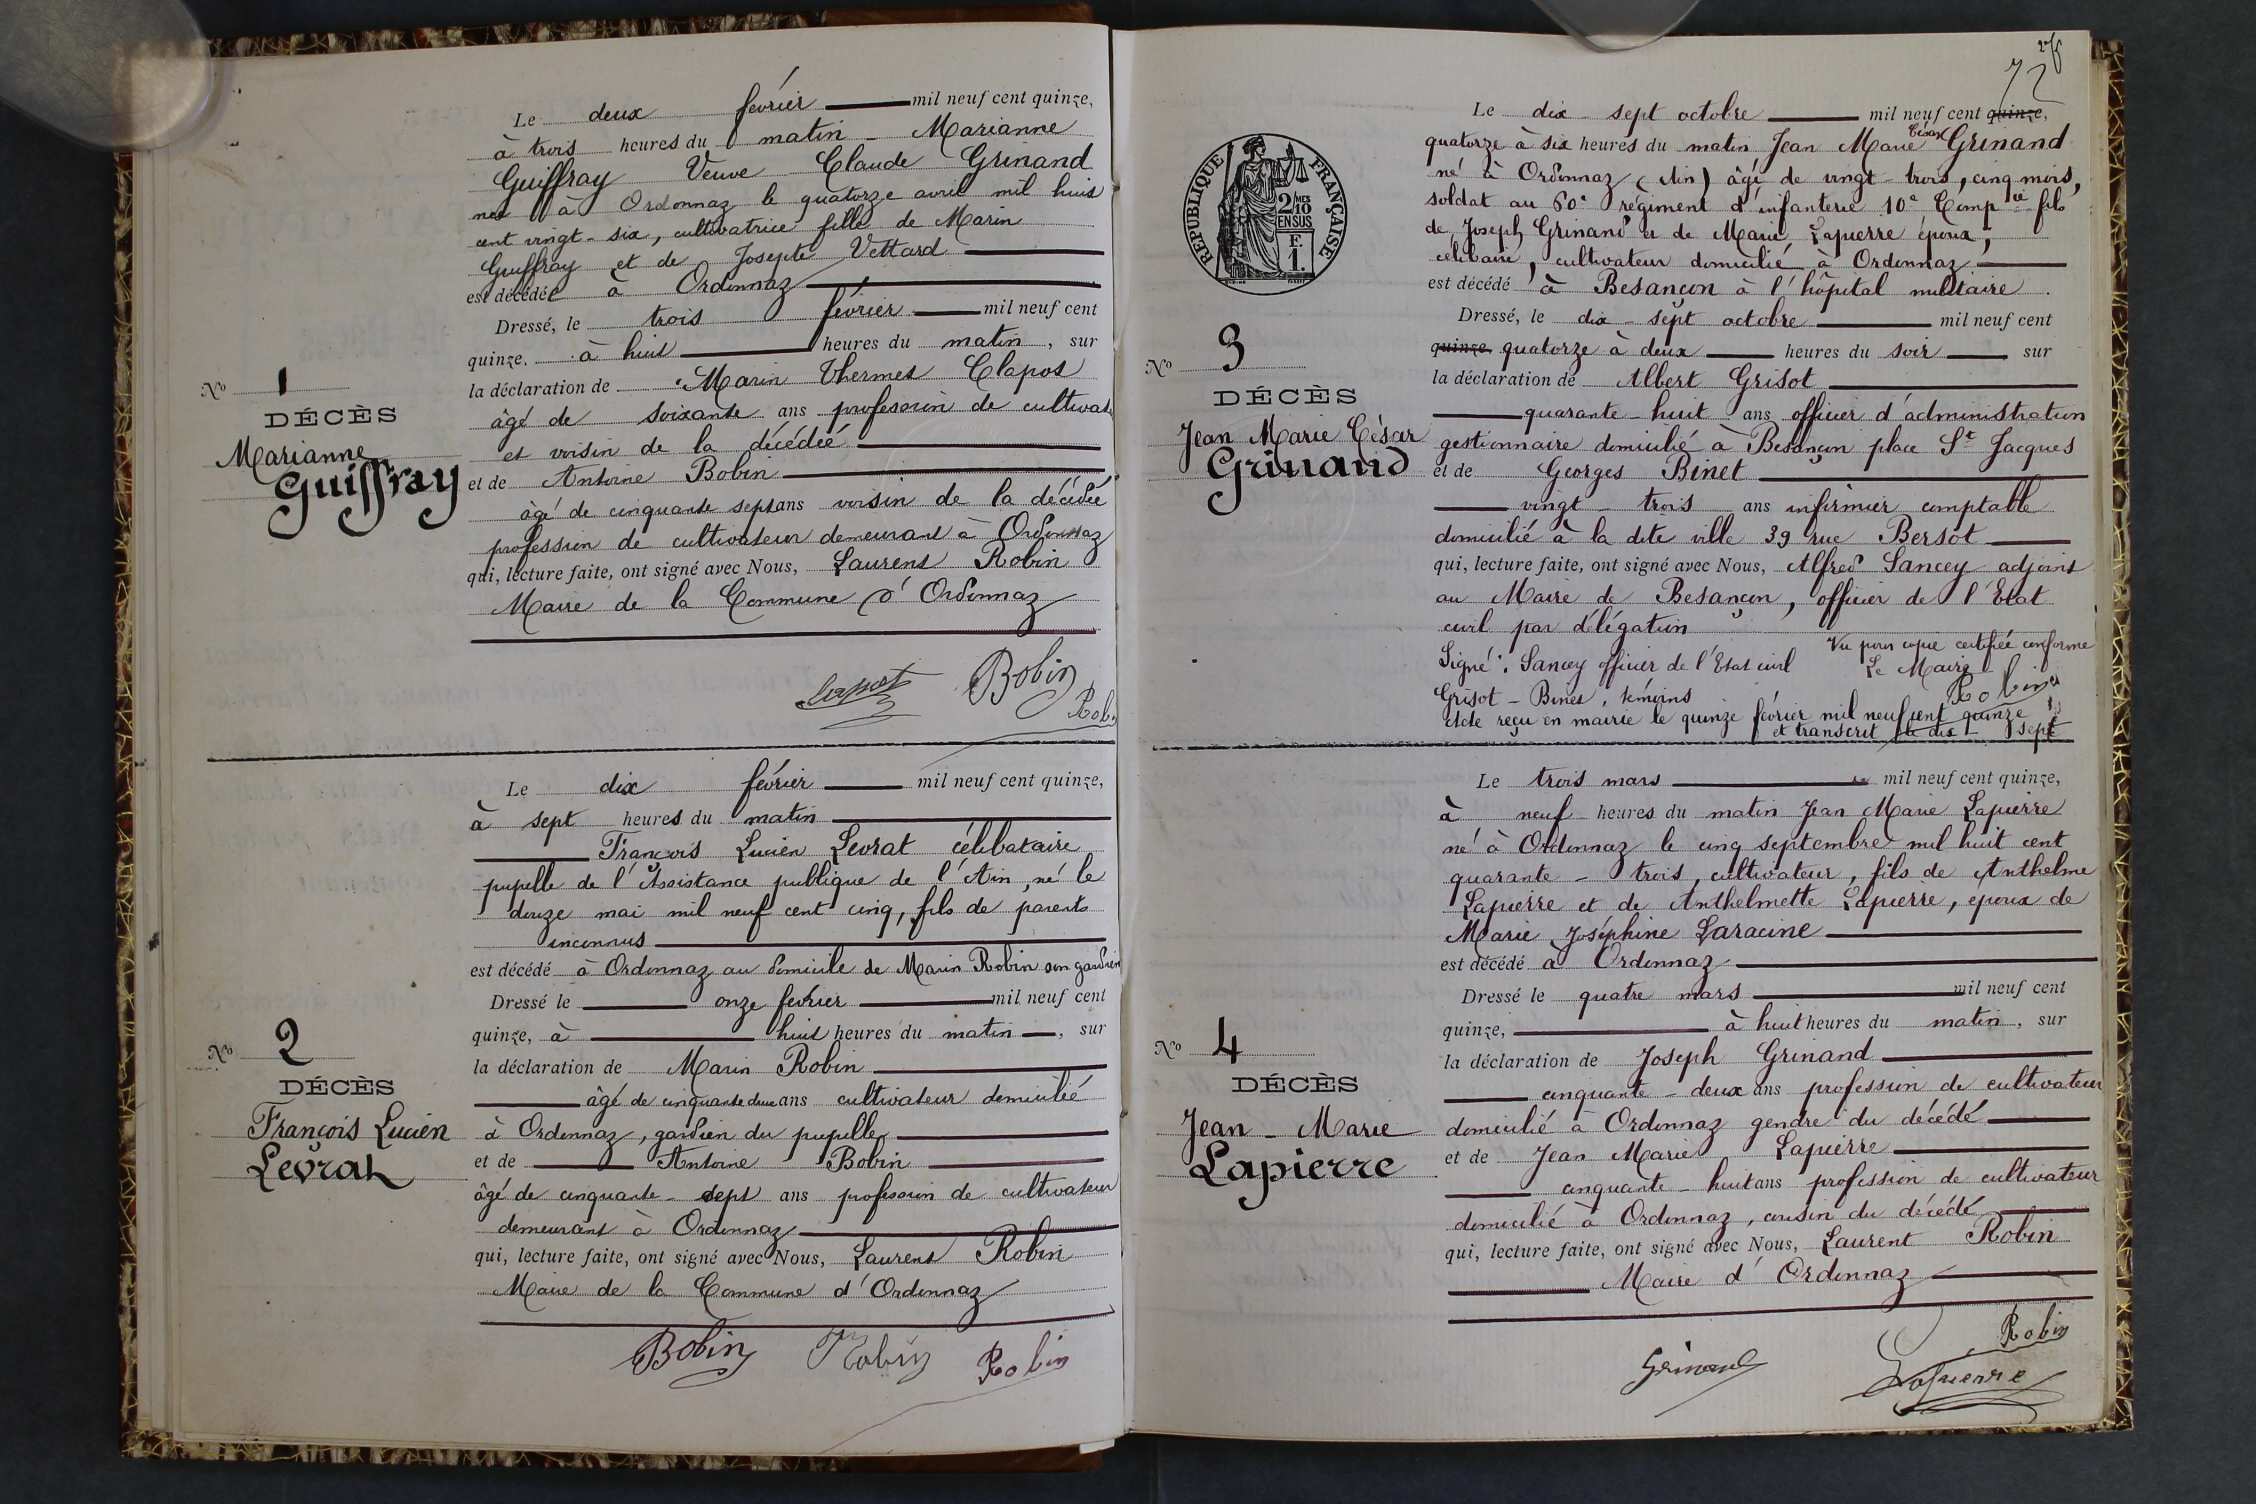 Le deux février mil neuf cent quinze,
à trois heures du matin - Marianne
Guiffray Veuve Claude Grinand
née à Ordonnaz le quatorze avril mil huit
cent vingt-six, cultivatrice fille de Marin
Guiffray et de Josephte Vettard
est décédée à Ordonnaz
Dressé, le trois février mil neuf cent
quinze. à huit heures du matin, sur
la déclaration de Marin Thermes Clapot
âgé de soixante ans profession de cultivat
et voisin de la décédée
et de Antoine Bobin
âgé de cinquante sept ans voisin de la décédée
profession de cultivateur demeurant à Ordonnaz
qui, lecture faite, ont signé avec Nous, Laurent Robin
Maire de la Commune d'Ordonnaz
Nº 1
DÉCÈS
Marianne
Guiffray
Clapot Bobin
Rob
Le dix février mil neuf cent quinze,
à sept heures du matin
François Lucien Levrat célibataire
pupille de l'Assistance publique de l'Ain, né le
douze mai mil neuf cent cinq, fils de parents
inconnus
est décédé à Ordonnaz au domicile de Marin Robin son gardien
Dressé le onze février mil neuf cent
quinze, à huit heures du matin, sur
la déclaration de Marin Robin
âgé de cinquante deux ans cultivateur domicilié
à Ordonnaz, gardien du pupille
et de Antoine Bobin
âgé de cinquante-sept ans profession de cultivateur
demeurant à Ordonnaz
qui, lecture faite, ont signé avec Nous, Laurent Robin
Maire de la Commune d'Ordonnaz
Nº 2
DÉCÈS
François Lucien
Levrat
Bobin Robin Robin
72
RÉPUBLIQUE FRANÇAISE
2/10 MES
EN SUS
F.
1.
Le dix-sept octobre mil neuf cent quinze,
quatorze à six heures du matin Jean Marie César Grinand
né à Ordonnaz (Ain) âgé de vingt-trois, cinq mois,
soldat au 60e régiment d'infanterie 10e Compie fils
de Joseph Grinand et de Marie Lapierre époux,
célibaire, cultivateur domicilié à Ordonnaz
est décédé à Besançon à l'hôpital militaire.
Dressé, le dix-sept octobre mil neuf cent
quinze, quatorze à deux heures du soir sur
la déclaration de Albert Grisot
quarante-huit ans officier d'administration
gestionnaire domicilié à Besançon place St Jacques
et de Georges Binet
vingt-trois ans infirmier comptable
domicilié à la dite ville 39 rue Bersot
qui, lecture faite, ont signé avec Nous, Alfred Sancey adjoint
au Maire de Besançon, officier de l'Etat
civil par délégation
Signé: Sancey officier de l'Etat civil
Grisot - Binet, témoins
Vu pour copie certifiée conforme
Le Maire
Robin
Acte reçu en mairie le quinze février mil neuf cent quinze
et transcrit le dix-sept
Nº 3
DÉCÈS
Jean Marie César
Grinand
Le trois mars mil neuf cent quinze,
à neuf heures du matin Jean Marie Lapierre
né à Ordonnaz le cinq septembre mil huit cent
quarante-trois, cultivateur, fils de Anthelme
Lapierre et de Anthelmette Lapierre, époux de
Marie Joséphine Laracine
est décédé à Ordonnaz
Dressé le quatre mars mil neuf cent
quinze, à huit heures du matin, sur
la déclaration de Joseph Grinand
cinquante-deux ans profession de cultivateur
domicilié à Ordonnaz gendre du décédé
et de Jean Marie Lapierre
cinquante-huit ans profession de cultivateur
domicilié à Ordonnaz, cousin du décédé
qui, lecture faite, ont signé avec Nous, Laurent Robin
Maire d'Ordonnaz
Nº 4
DÉCÈS
Jean-Marie
Lapierre
Robin
Grinand Lapierre